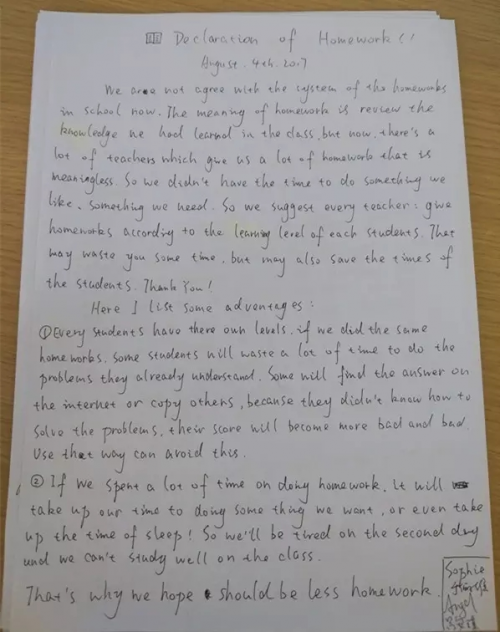 Declaration of Homework!!
August. 4th. 2017
We are not agree with the system of the homeworks
in school now. The meaning of homework is review the
knowledge we had learned in the class, but now, there's a
lot of teachers which give us a lot of homework that is
meaningless. So we didn't have the time to do something we
like, something we need. So we suggest every teacher: give
homeworks accordig to the learning level of each students. That
may waste you some time, but may also save the times of
the students. Thank you!
Here I list some adventages:
①Every students have there own levels, if we did the same
homeworks, some students will waste a lot of time to do the
problems they already understand. Some will find the answer on
the internet or copy others, because they didn't know how to
solve the problems, their score will become more bad and bad.
Use that way can avoid this.
② If we spent a lot of time on doing homework, it will
take up our time to doing some thing we want, or even take
up the time of sleep! So we'll be tired on the second day
and we can't study well on the class.
That's why we hope should be less homework.
Sophie
Angel